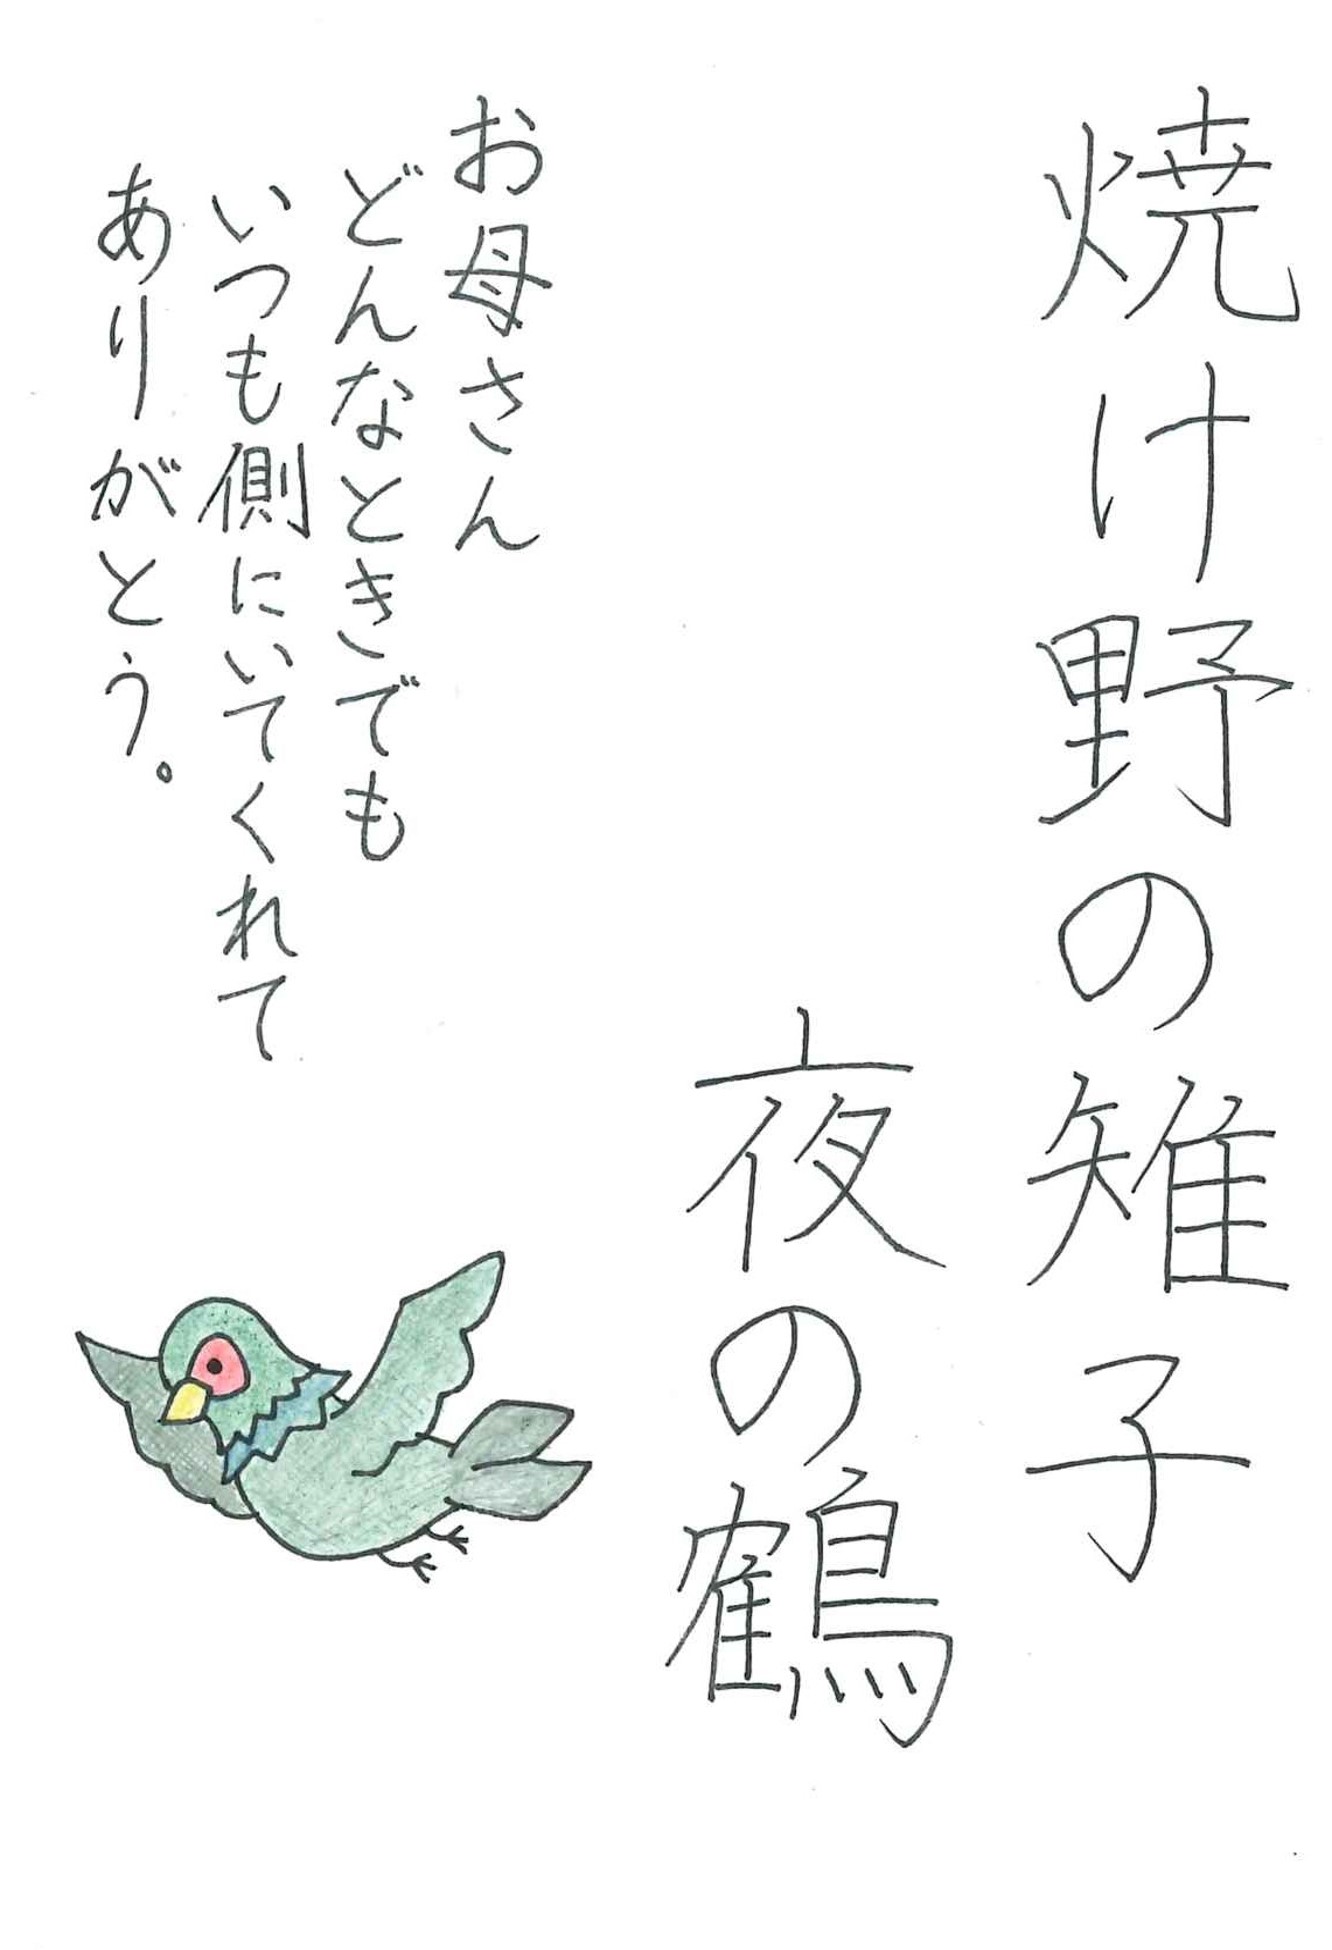 焼け野の雉子
夜の鶴
お母さん
どんなときでも
いつも側にいてくれて
ありがとう。